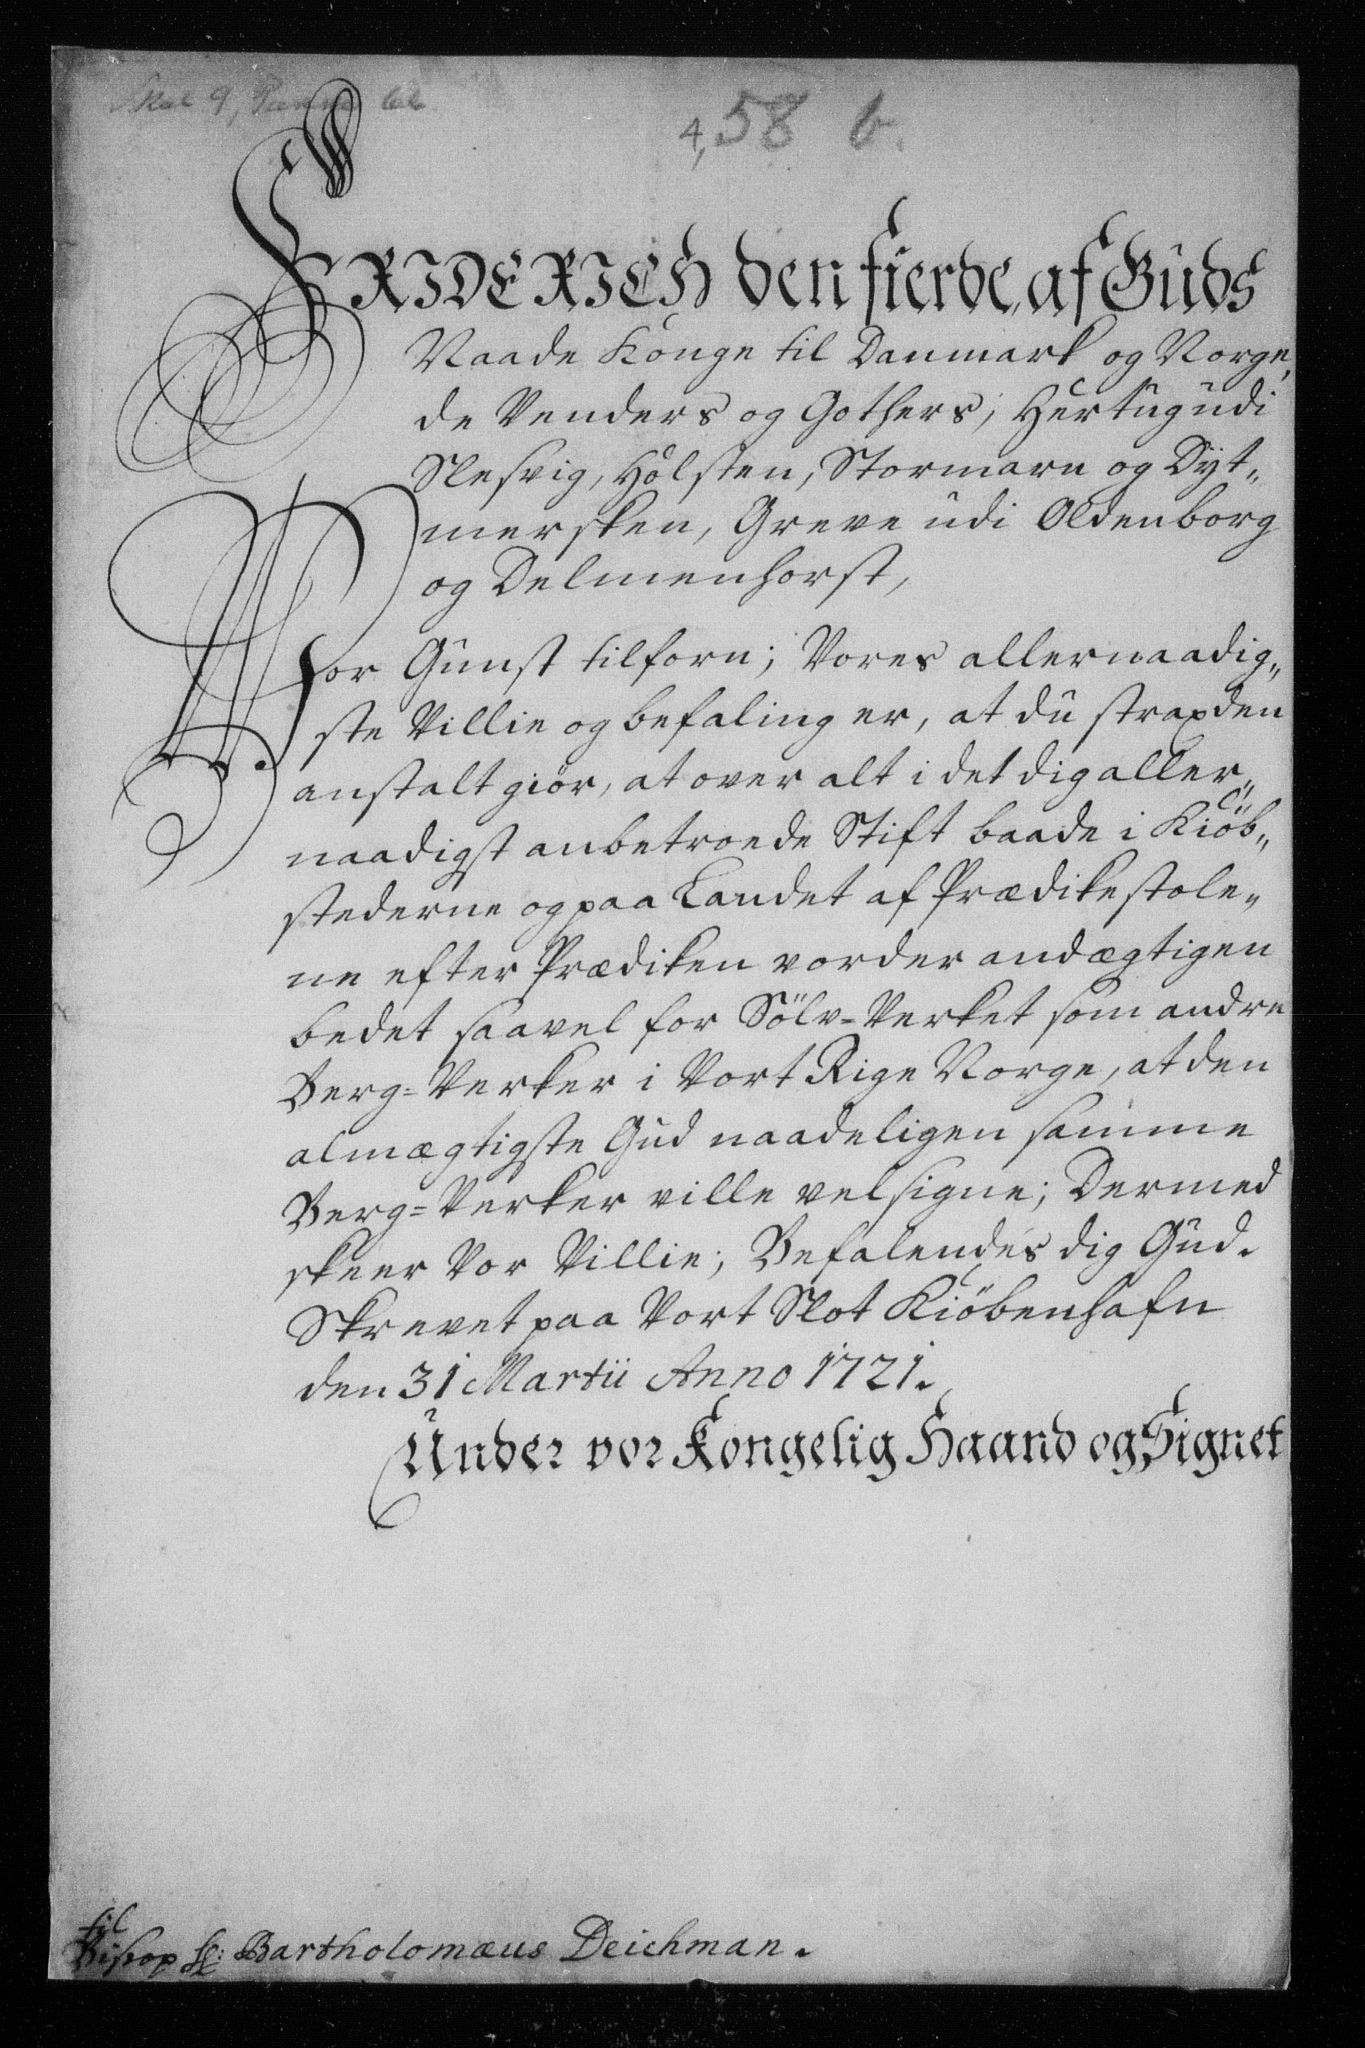 4, 58 b.
FRIDERICH den fierde, af Guds
Naade Konge til Danmark og Norge,
de Venders og Gothers, Hertug udi
Slesvig, Holsten, Stormarn og Dyt„
mersken, Greve udi Oldenborg
og Delmenhorst,
Vor Gunst tilforn; Vores allernaadig„
ste Villie og befaling er, at du strax den
anstalt giör, at over alt i det dig aller„
naadigst anbetroede Stift baade i Kiöb„
stederne og paa Landet af Prædikestole„
ne efter Prædiken vorder andægtigen
bedet saavel for Sölv=Verket som andre
Berg=Verker i Vort Rige Norge, at den
almægtigste Gud naadeligen samme
Berg=Verker ville velsigne; Dermed
skeer Vor Villie; Befalendes dig Gud.
Skrevet paa Vort Slot Kiöbenhafn
den 31 Martii Anno 1721.
Under vor Kongelig Haand og Signet
til
Biskop Hr: Bartholomæus Deichman.